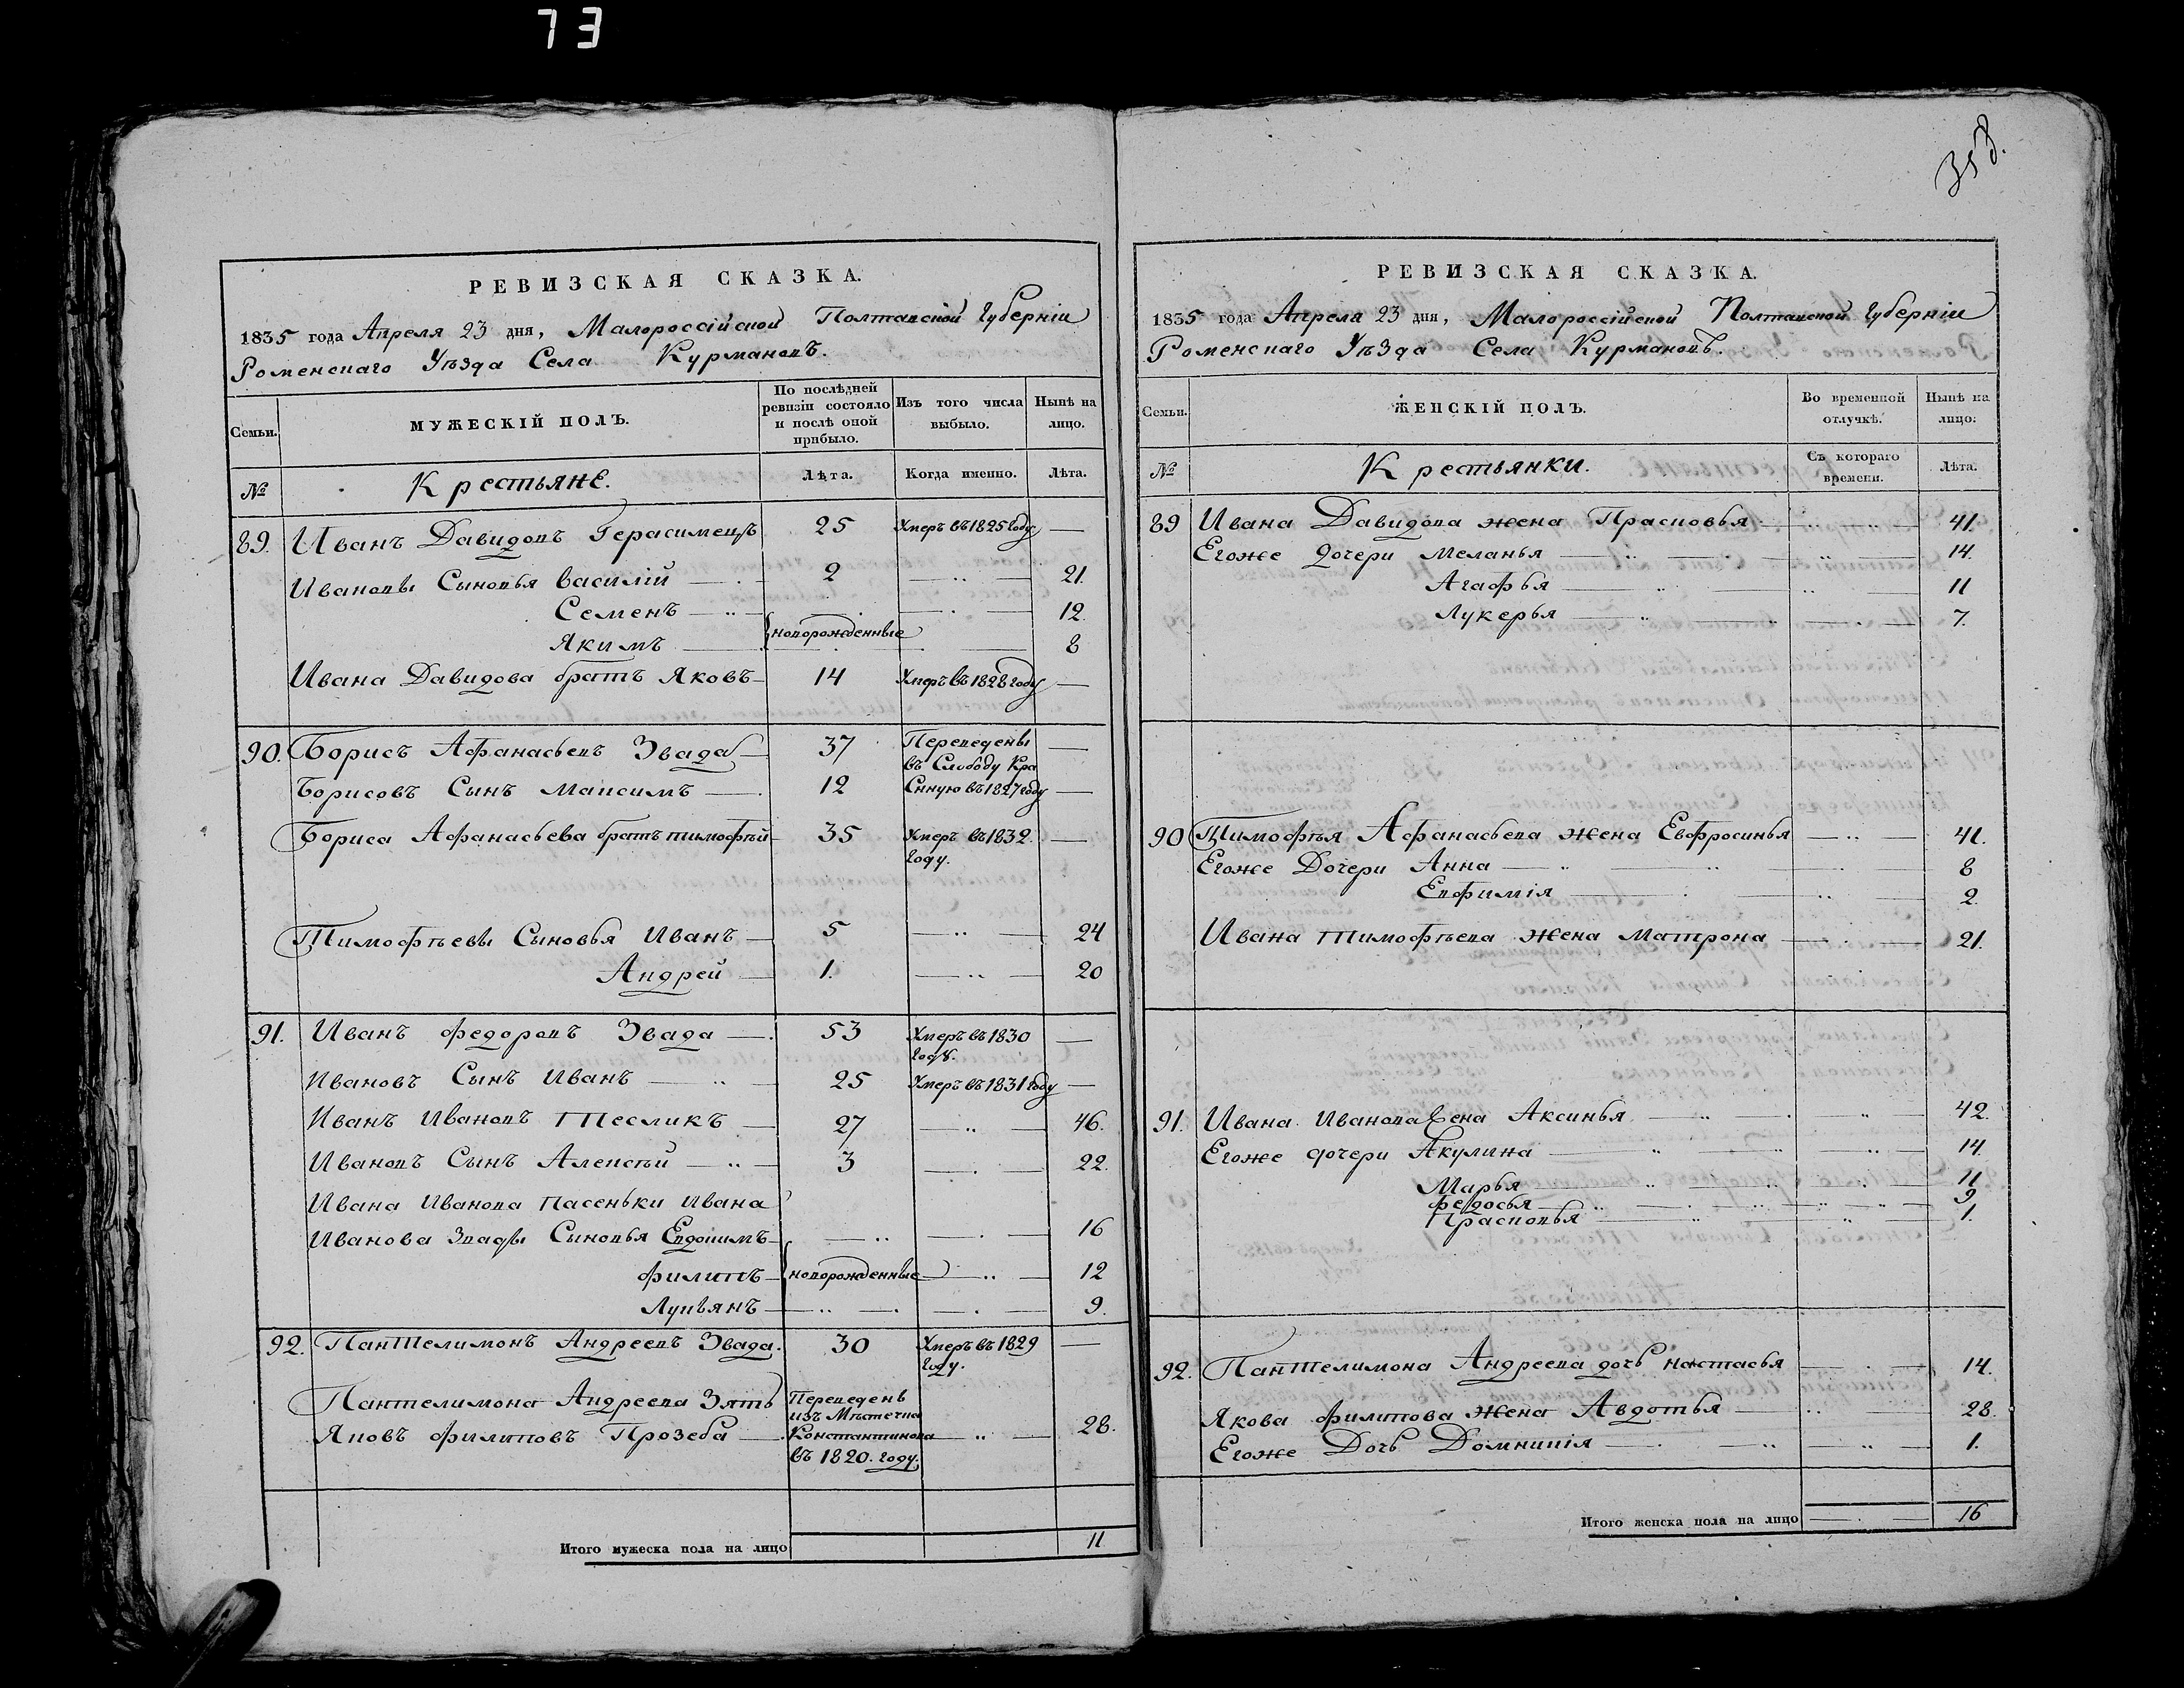 73
358.
РЕВИЗСКАЯ СКАЗКА.
1835 года Апреля 23 дня, Малороссійской Полтавской Губерніи
Роменскаго Уѣзда Села Курмановъ.
Семьи. МУЖЕСКІЙ ПОЛЪ. По послѣдней ревизіи состояло и послѣ оной прибыло. Изъ того числа выбыло. Нынѣ на лицо.
№ Крестьяне. Лѣта. Когда именно. Лѣта.
89. Иванъ Давидовъ Герасимецъ 25 Умеръ въ 1825 году —
Ивановы Сыновья Василій 2 — 21.
Семенъ — 12.
Якимъ новорожденные — 8
Ивана Давидова братъ Яковъ 14 Умеръ въ 1828 году —
90. Борисъ Афанасьевъ Звада 37 Переведены —
въ Слободу Кра
Борисовъ Сынъ Максимъ 12 Сную въ 1827 году —
Бориса Афанасьева братъ тимофѣй 35 Умеръ въ 1832. —
году.
Тимофѣевы Сыновья Иванъ 5 — 24
Андрей 1. — 20
91. Иванъ Федоровъ Звада 53 Умеръ въ 1830 —
году.
Ивановъ Сынъ Иванъ 25 Умеръ въ 1831 году —
Иванъ Ивановъ Тесликъ 27 — 46.
Ивановъ Сынъ Алексѣй 3 — 22.
Ивана Иванова пасеньки Ивана
Иванова Звады Сыновья Евдокимъ — 16
Филипъ новорожденные — 12
Лукьянъ — 9.
92. Пантелимонъ Андреевъ Звада. 30 Умеръ въ 1829 —
году.
Пантелимона Андреева Зять Переведенъ
изъ Мѣстечка
Яковъ Филиповъ Прозеба Константинова — 28.
въ 1820. году.
Итого мужеска пола на лицо 11
РЕВИЗСКАЯ СКАЗКА.
1835 года Апреля 23 дня, Малороссійской Полтавской Губерніи
Роменскаго Уѣзда Села Курмановъ.
Семьи. ЖЕНСКІЙ ПОЛЪ. Во временной отлучкѣ. Нынѣ на лицо.
№ Крестьянки. Съ котораго времени. Лѣта.
89 Ивана Давидова жена Прасковья — 41.
Егоже дочери Меланья — 14.
Агафья — 11
Лукерья — 7.
90 Тимофѣя Афанасьева жена Евфросинья — 41.
Егоже Дочери Анна — 8
Евфимія — 2.
Ивана тимофѣева жена матрона — 21.
91. Ивана Иванова жена Аксинья — 42.
Егоже дочери Акулина — 14.
Марья — 11
федосья — 9
Прасковья — 1.
92. Пантелимона Андреева дочь настасья — 14.
Якова Филипова жена Авдотья — 28.
Егоже Дочь Домникія — 1.
Итого женска пола на лицо — 16